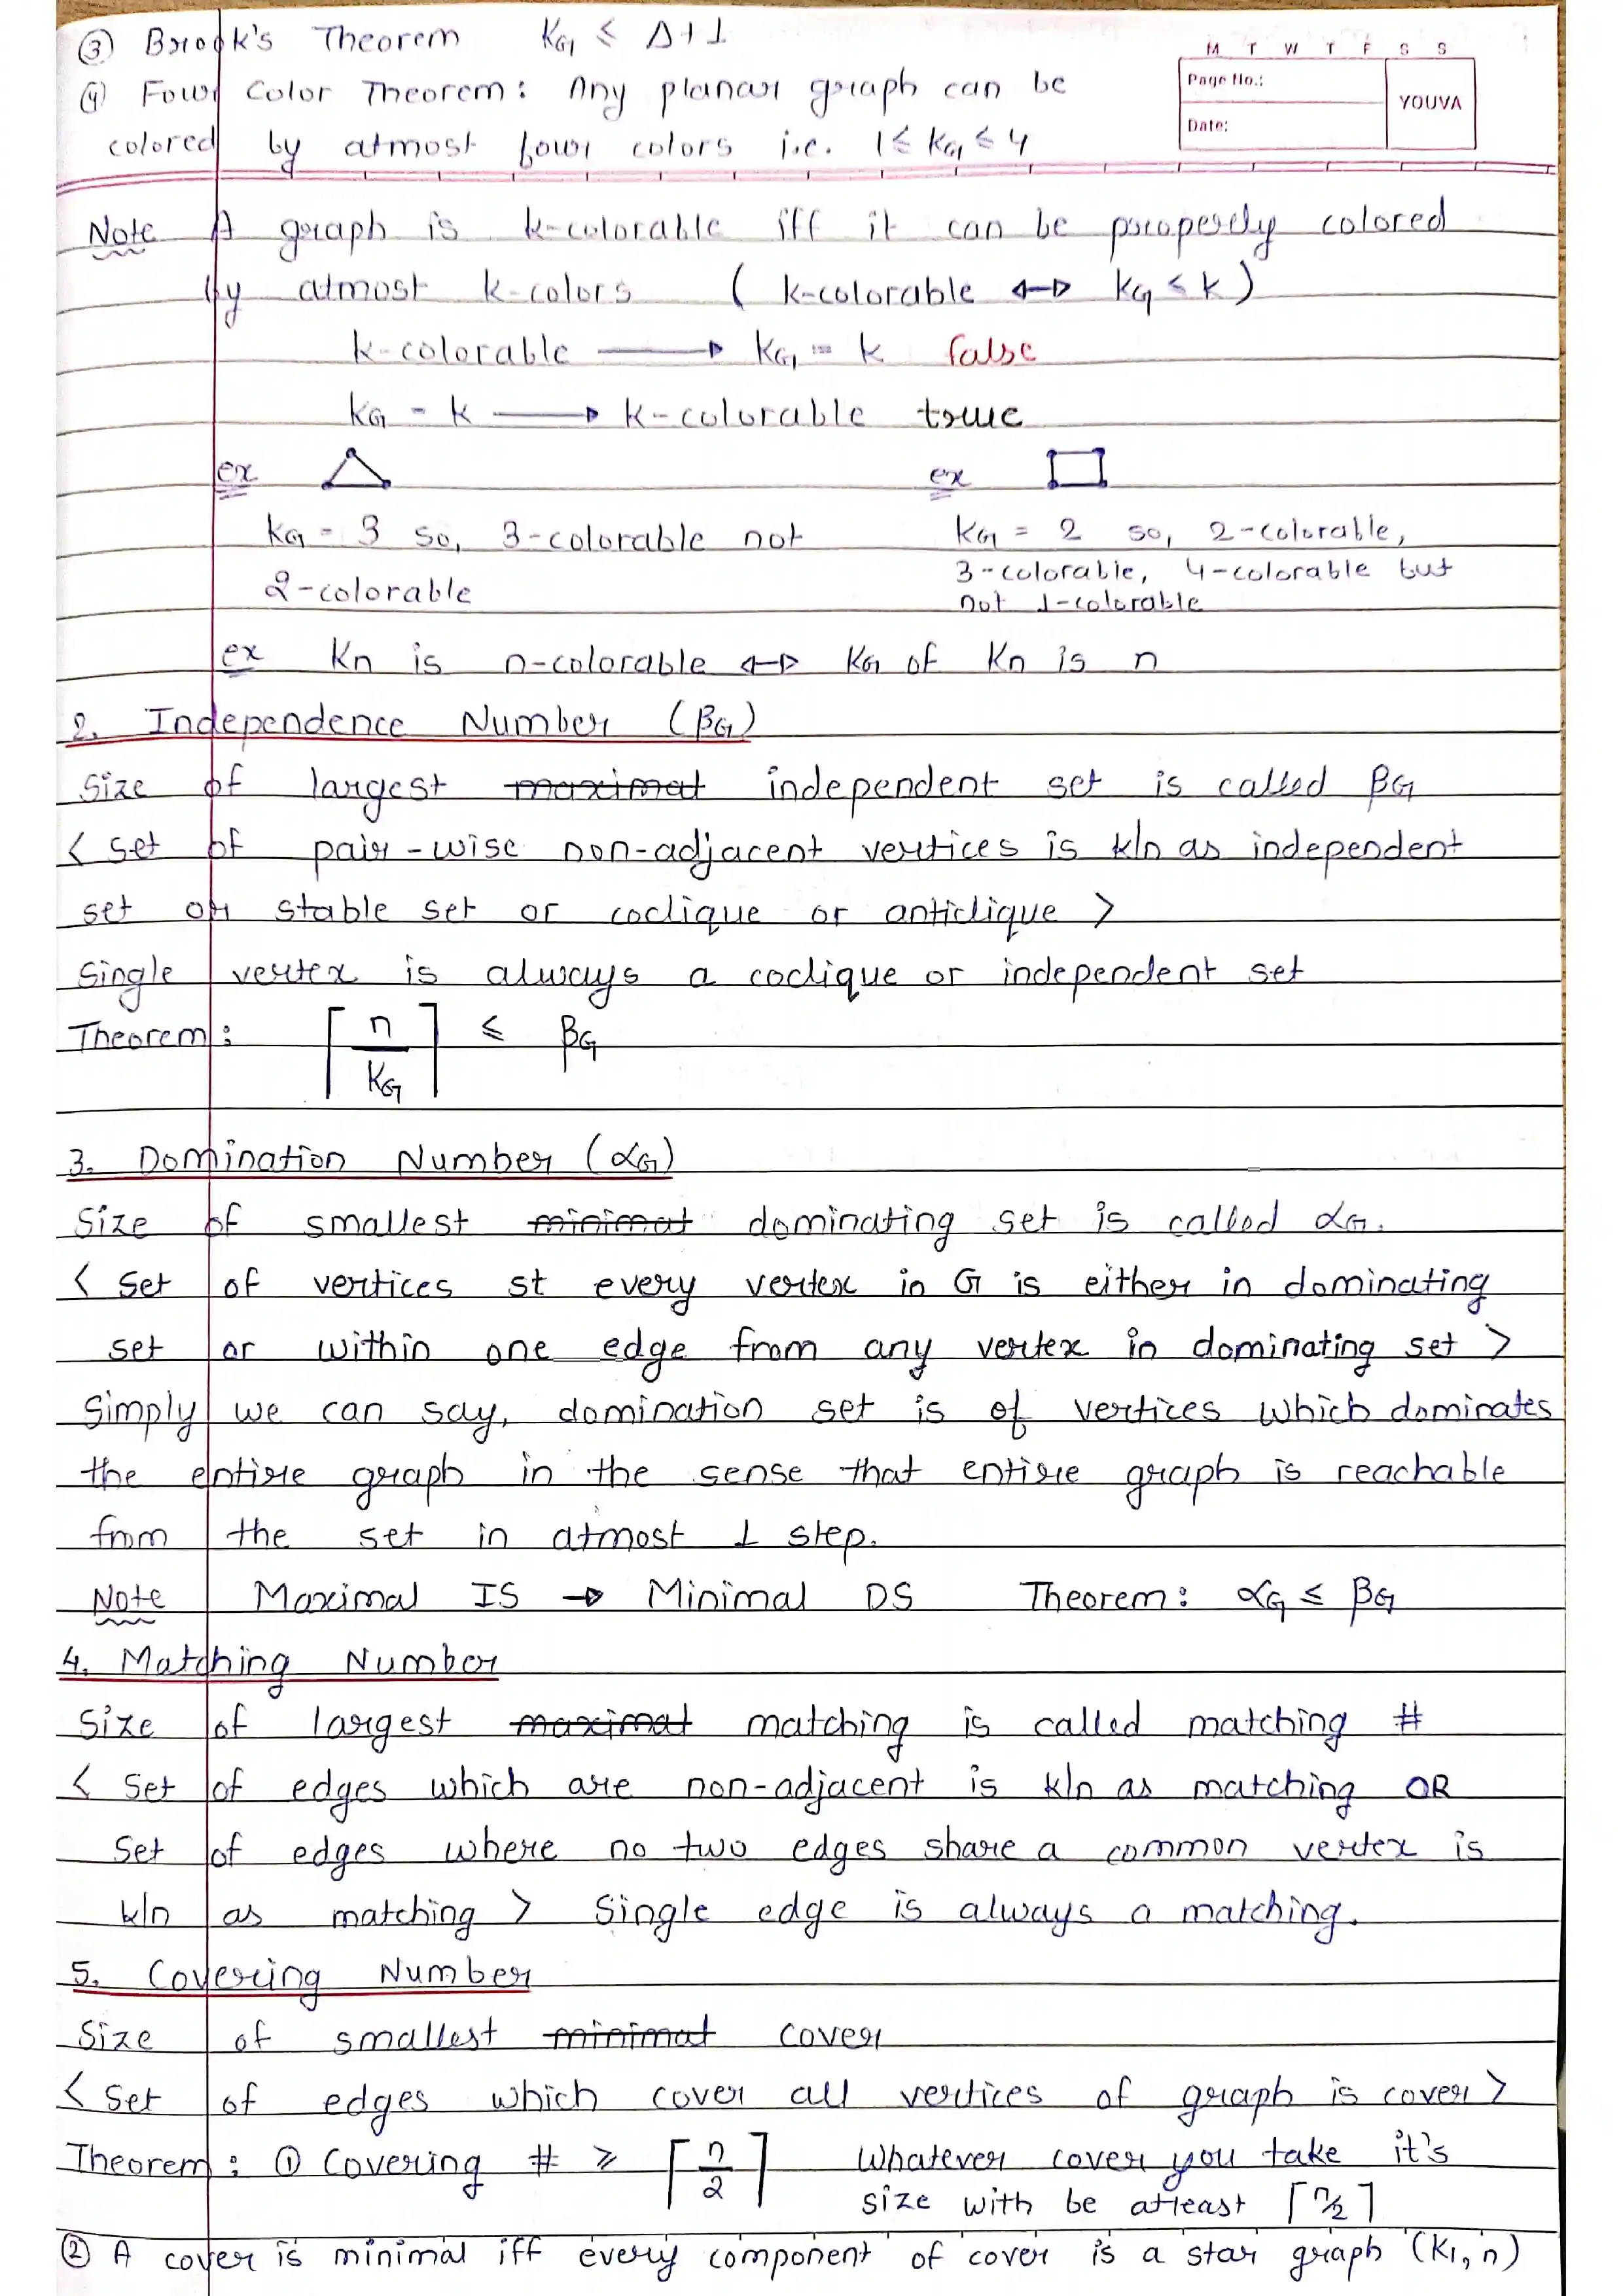 ③ Brook's Theorem K_G ≤ Δ+1
M T W T F S S
Page No.:
Date:
YOUVA
④ Four Color Theorem: Any planar graph can be
colored by atmost four colors i.e. 1 ≤ K_G ≤ 4
Note A graph is k-colorable iff it can be properly colored
by atmost k-colors ( k-colorable ↔ K_G ≤ k )
k-colorable → K_G = k false
K_G = k → k-colorable true
ex ex
K_G = 3 so, 3-colorable not
2-colorable
K_G = 2 so, 2-colorable,
3-colorable, 4-colorable but
not 1-colorable
ex Kn is n-colorable ↔ K_G of Kn is n
2. Independence Number (β_G)
Size of largest maximal independent set is called β_G
< set of pair-wise non-adjacent vertices is k/n as independent
set or stable set or coclique or anticlique >
Single vertex is always a coclique or independent set
Theorem: ⌈n/K_G⌉ ≤ β_G
3. Domination Number (α_G)
Size of smallest minimal dominating set is called α_G.
< Set of vertices st every vertex in G is either in dominating
set or within one edge from any vertex in dominating set >
Simply we can say, domination set is of vertices which dominates
the entire graph in the sense that entire graph is reachable
from the set in atmost 1 step.
Note Maximal IS → Minimal DS Theorem: α_G ≤ β_G
4. Matching Number
Size of largest maximal matching is called matching #
< Set of edges which are non-adjacent is k/n as matching OR
Set of edges where no two edges share a common vertex is
k/n as matching > Single edge is always a matching.
5. Covering Number
Size of smallest minimal cover
< Set of edges which cover all vertices of graph is cover >
Theorem: ① Covering # ≥ ⌈n/2⌉ Whatever cover you take it's
size with be atleast ⌈n/2⌉
② A cover is minimal iff every component of cover is a star graph (K1,n)